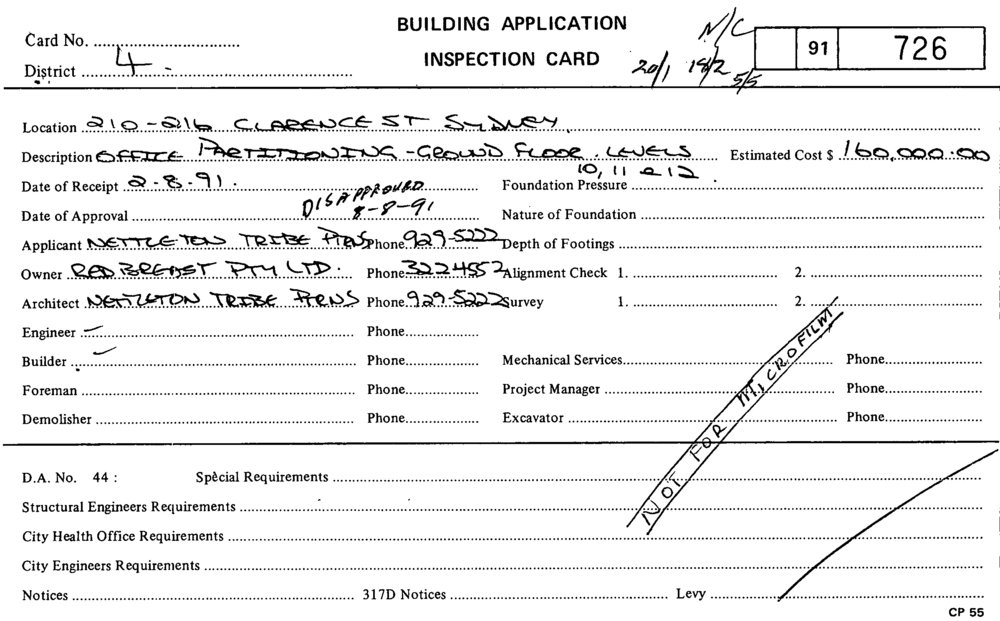 BUILDING APPLICATION
INSPECTION CARD
Card No.
District 4
N/C
20/1 18/2 5/5
91 726
Location 210-216 CLARENCE ST SYDNEY
Description OFFICE PARTITIONING - GROUND FLOOR. LEVELS Estimated Cost $ 160,000.00
10, 11 & 12
Date of Receipt 2.8.91. Foundation Pressure
DISAPPROVED
Date of Approval 8-8-91 Nature of Foundation
Applicant NETTLETON TRIBE PTRNS Phone 929-5222 Depth of Footings
Owner REDBREAST PTY LTD. Phone 3224552 Alignment Check 1. 2.
Architect NETTLETON TRIBE PTRNS Phone 929-5222 Survey 1. 2.
Engineer - Phone
Builder Phone Mechanical Services Phone
Foreman Phone Project Manager Phone
Demolisher Phone Excavator Phone
NOT FOR MICROFILM
D.A. No. 44 : Special Requirements
Structural Engineers Requirements
City Health Office Requirements
City Engineers Requirements
Notices 317D Notices Levy
CP 55